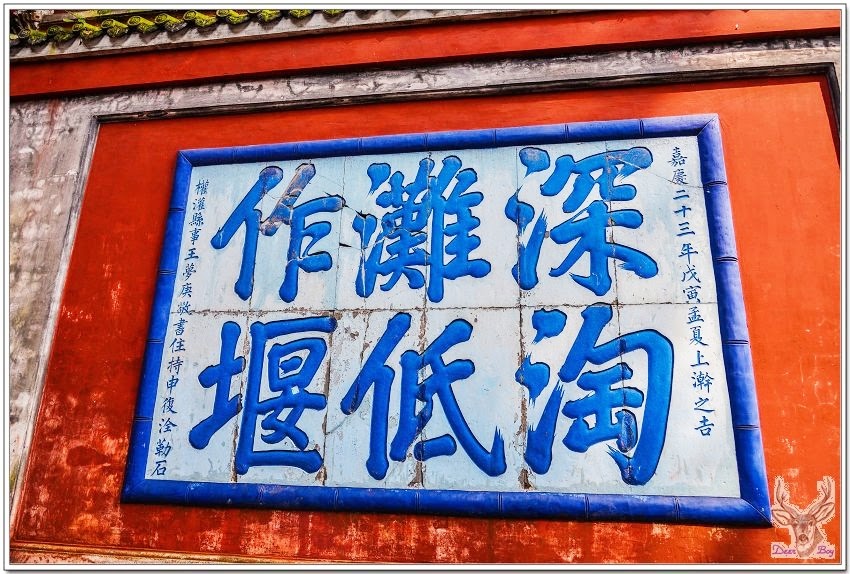 嘉慶二十三年戊寅孟夏上澣之吉
深淘
灘低
作堰
權灌縣事王夢庚敬書住持申復淦勒石
Deer Boy